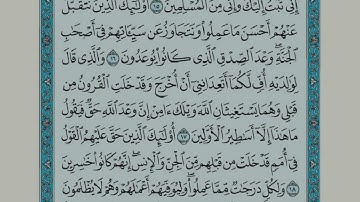 إِنِّي تُبْتُ إِلَيْكَ وَإِنِّي مِنَ الْمُسْلِمِينَ ١٥ أُولَٰئِكَ الَّذِينَ نَتَقَبَّلُ
عَنْهُمْ أَحْسَنَ مَا عَمِلُوا وَنَتَجَاوَزُ عَنْ سَيِّئَاتِهِمْ فِي أَصْحَابِ
الْجَنَّةِ وَعْدَ الصِّدْقِ الَّذِي كَانُوا يُوعَدُونَ ١٦ وَالَّذِي قَالَ
لِوَالِدَيْهِ أُفٍّ لَكُمَا أَتَعِدَانِنِي أَنْ أُخْرَجَ وَقَدْ خَلَتِ الْقُرُونُ مِنْ
قَبْلِي وَهُمَا يَسْتَغِيثَانِ اللَّهَ وَيْلَكَ آمِنْ إِنَّ وَعْدَ اللَّهِ حَقٌّ فَيَقُولُ
مَا هَٰذَا إِلَّا أَسَاطِيرُ الْأَوَّلِينَ ١٧ أُولَٰئِكَ الَّذِينَ حَقَّ عَلَيْهِمُ الْقَوْلُ
فِي أُمَمٍ قَدْ خَلَتْ مِنْ قَبْلِهِمْ مِنَ الْجِنِّ وَالْإِنْسِ إِنَّهُمْ كَانُوا خَاسِرِينَ
١٨ وَلِكُلٍّ دَرَجَاتٌ مِمَّا عَمِلُوا وَلِيُوَفِّيَهُمْ أَعْمَالَهُمْ وَهُمْ لَا يُظْلَمُونَ